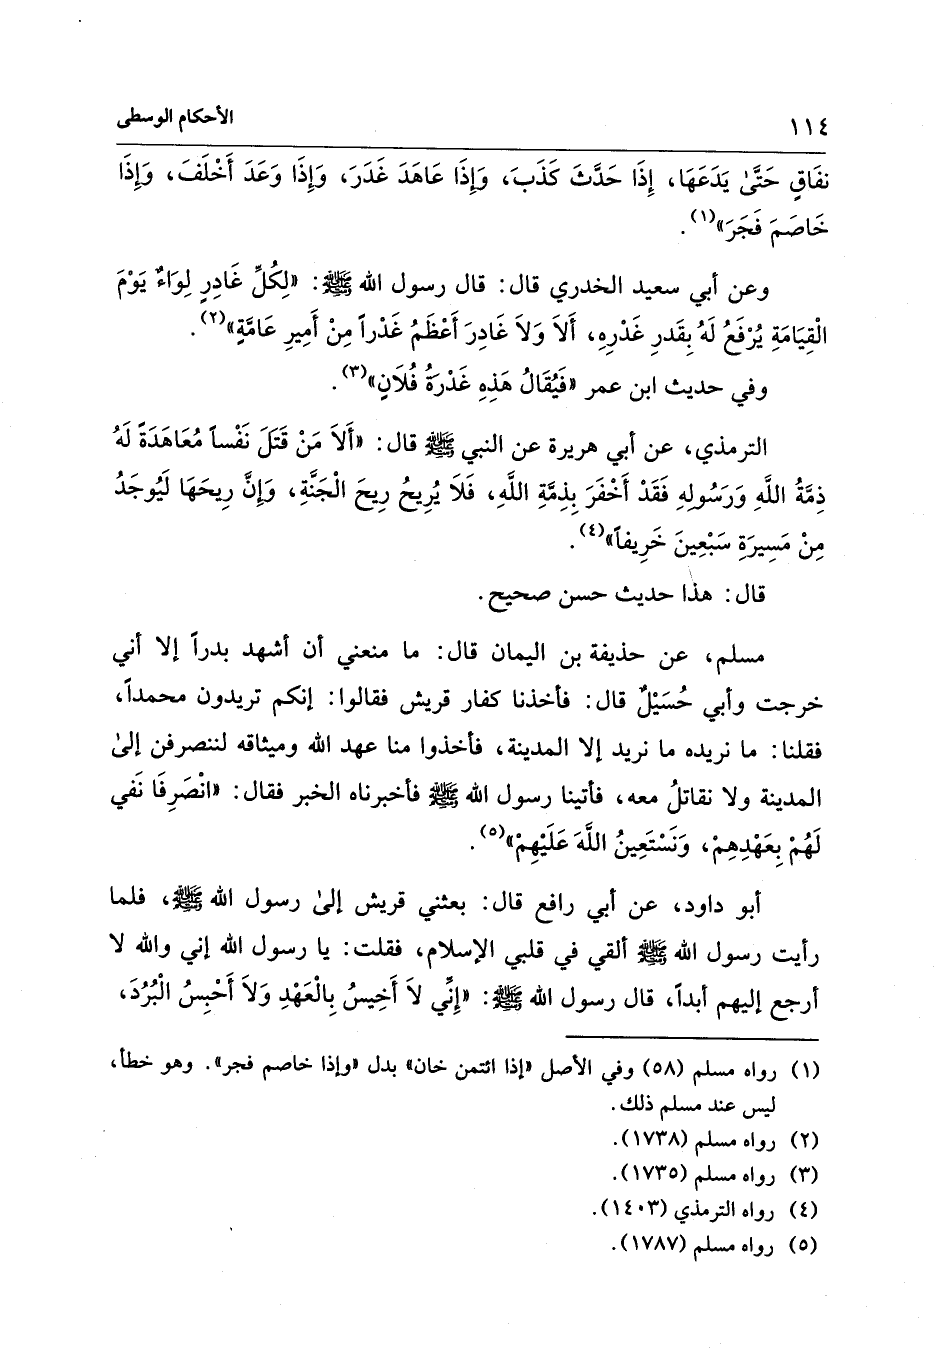 ١١٤ الأحكام الوسطى
نفَاقٍ حَتَّىٰ يَدَعَهَا، إِذَا حَدَّثَ كَذَبَ، وَإِذَا عَاهَدَ غَدَرَ، وَإِذَا وَعَدَ أَخْلَفَ، وَإِذَا
خَاصَمَ فَجَرَ»(١).
وعن أبي سعيد الخدري قال: قال رسول الله ﷺ: «لِكُلِّ غَادِرٍ لِوَاءٌ يَوْمَ
الْقِيَامَةِ يُرْفَعُ لَهُ بِقَدرِ غَدْرِهِ، أَلاَ وَلاَ غَادِرَ أَعْظَمُ غَدْراً مِنْ أَمِيرِ عَامَّةٍ»(٢).
وفي حديث ابن عمر «فَيُقَالُ هَذِهِ غَدْرَةُ فُلَانٍ»(٣).
الترمذي، عن أبي هريرة عن النبي ﷺ قال: «أَلاَ مَنْ قَتَلَ نَفْساً مُعَاهَدَةً لَهُ
ذِمَّةُ اللَّهِ وَرَسُولِهِ فَقَدْ أَخْفَرَ بِذِمَّةِ اللَّهِ، فَلَا يُرِيحُ رِيحَ الْجَنَّةِ، وَإِنَّ رِيحَهَا لَيُوجَدُ
مِنْ مَسِيرَةِ سَبْعِينَ خَرِيفاً»(٤).
قال: هذا حديث حسن صحيح.
مسلم، عن حذيفة بن اليمان قال: ما منعني أن أشهد بدراً إلا أني
خرجت وأبي حُسَيْلٌ قال: فأخذنا كفار قريش فقالوا: إنكم تريدون محمداً،
فقلنا: ما نريده ما نريد إلا المدينة، فأخذوا منا عهد الله وميثاقه لننصرفن إلىٰ
المدينة ولا نقاتلُ معه، فأتينا رسول الله ﷺ فأخبرناه الخبر فقال: «انْصَرِفَا نَفي
لَهُمْ بِعَهْدِهِمْ، وَنَسْتَعِينُ اللَّهَ عَلَيْهِمْ»(٥).
أبو داود، عن أبي رافع قال: بعثني قريش إلىٰ رسول الله ﷺ، فلما
رأيت رسول الله ﷺ ألقي في قلبي الإسلام، فقلت: يا رسول الله إني والله لا
أرجع إليهم أبداً، قال رسول الله ﷺ: «إِنِّي لاَ أَخِيسُ بِالْعَهْدِ وَلاَ أَحْبِسُ الْبُرُدَ،
(١) رواه مسلم (٥٨) وفي الأصل «إذا ائتمن خان» بدل «وإذا خاصم فجر». وهو خطأ،
ليس عند مسلم ذلك.
(٢) رواه مسلم (١٧٣٨).
(٣) رواه مسلم (١٧٣٥).
(٤) رواه الترمذي (١٤٠٣).
(٥) رواه مسلم (١٧٨٧).